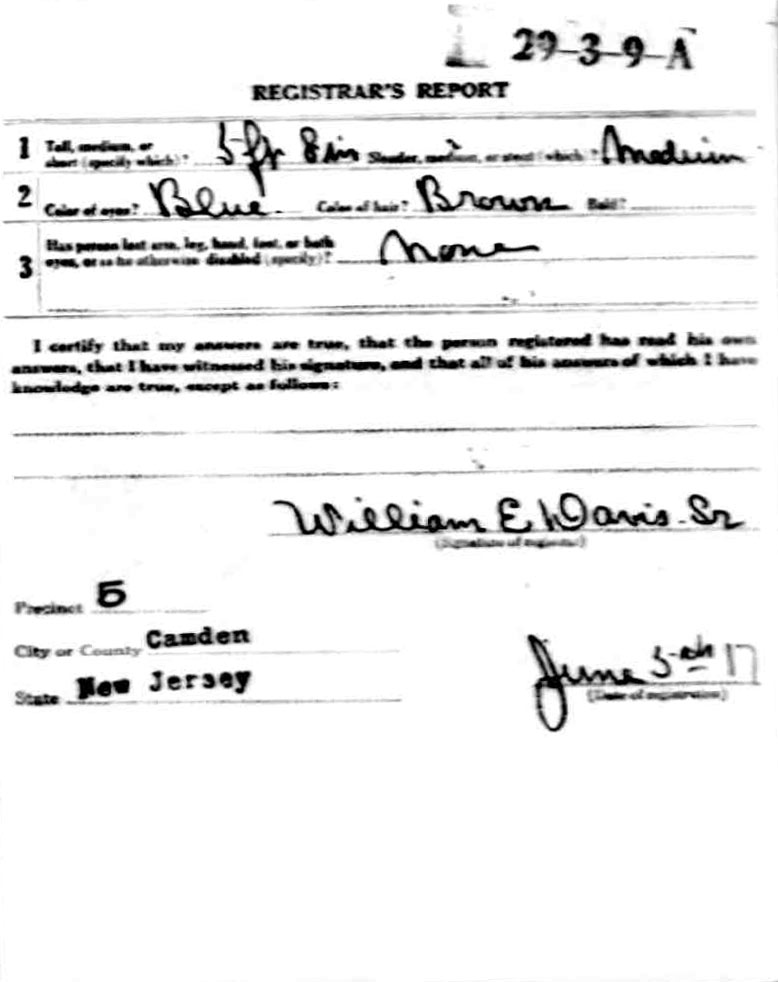 29-3-9-A
REGISTRAR'S REPORT
1 Tall, medium, or short (specify which)? 5 ft 8 in Slender, medium, or stout (which)? Medium
2 Color of eyes? Blue Color of hair? Brown Bald?
3 Has person lost arm, leg, hand, foot, or both
eyes, or is he otherwise disabled (specify)? None
I certify that my answers are true, that the person registered has read his own
answers, that I have witnessed his signature, and that all of his answers of which I have
knowledge are true, except as follows:
William E Davis Sr
(Signature of registrar)
Precinct 5
City or County Camden
State New Jersey
June 5th 17
(Date of registration)